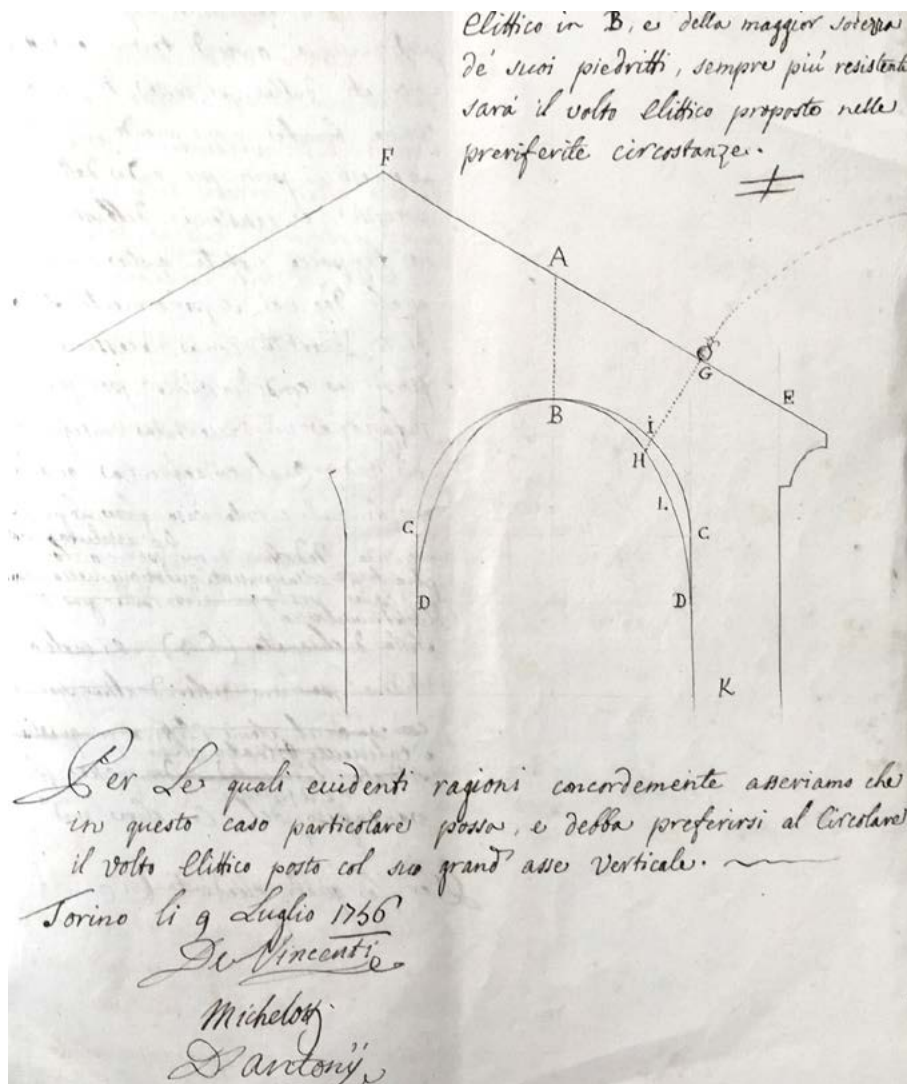 Elittico in B, e della maggior sodezza
de' suoi piedritti, sempre più resistente
sarà il volto Elittico proposto nelle
preriferite circostanze.
F
A
G
E
B
i
H
L
C
C
D
D
K
Per Le quali evidenti ragioni concordemente asseriamo che
in questo caso particolare possa, e debba preferirsi al Circolare
il volto Elittico posto col suo grand' asse verticale.
Torino li 9 Luglio 1756
De Vincenti
Michelotti
D'antonj